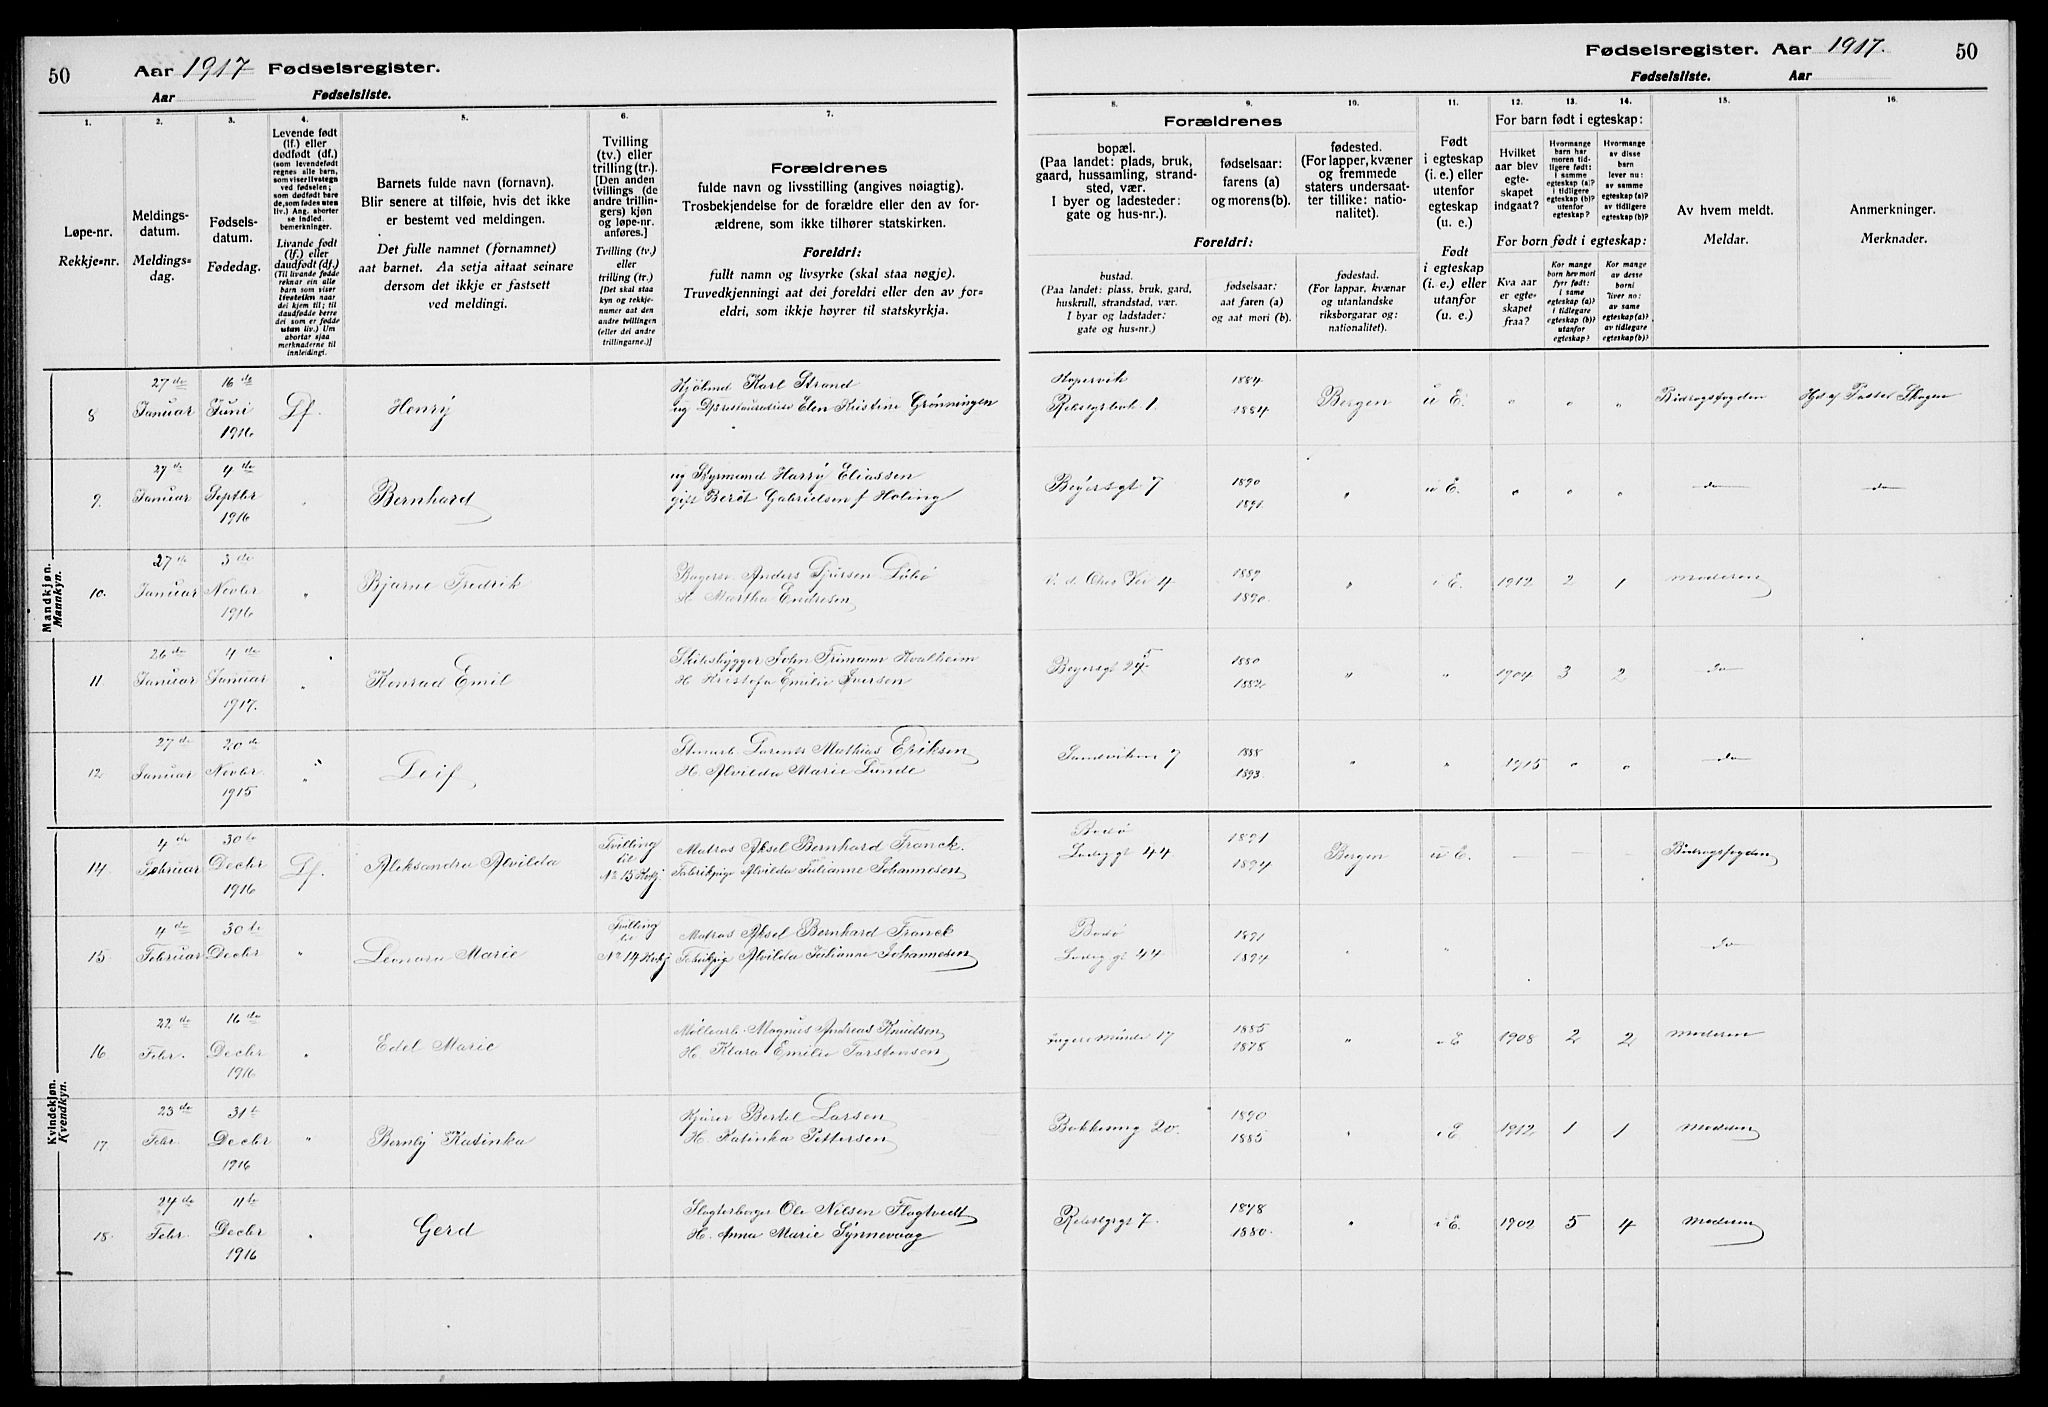 50
Aar 1917 Fødselsregister.
Aar Fødselsliste.
1.
2.
3.
4.
5.
6.
7.
Løpe-nr.
Rekkje-nr.
Meldings-
datum.
Meldings-
dag.
Fødsels-
datum.
Fødedag.
Levende født
(lf.) eller
dødfødt (df.)
(som levendefødt
regnes alle barn,
som viser livstegn
ved fødselen;
som dødfødt bare
de, som fødes uten
liv.) Ang. aborter
se indled.
bemerkninger.
Livande født
(lf.) eller
daudfødt (df.)
(Til livande fødde
reknar ein alle
barn som viser
livsteikn naar
dei kjem til; til
daudfødde berre
dei som er fødde
utan liv.) Um
abortar sjaa
merknaderne til
innleidingi.
Barnets fulde navn (fornavn).
Blir senere at tilføie, hvis det ikke
er bestemt ved meldingen.
Det fulle namnet (fornamnet)
aat barnet. Aa setja aitaat seinare
dersom det ikkje er fastsett
ved meldingi.
Tvilling
(tv.) eller
trilling (tr.).
[Den anden
tvillings (de
andre trillin-
gers) kjøn
og løpe-nr.
anføres.]
Tvilling (tv.)
eller
trilling (tr.)
[Det skal staa
kyn og rekkje-
numer aat den
andre tvillingen
(eller dei andre
trillingarne.)]
Forældrenes
fulde navn og livsstilling (angives nøiagtig).
Trosbekjendelse for de forældre eller den av for-
ældrene, som ikke tilhører statskirken.
Foreldri:
fullt namn og livsyrke (skal staa nøgje).
Truvedkjenningi aat dei foreldri eller den av for-
eldri, som ikkje høyrer til statskyrkja.
Mandkjøn.
Mannkyn.
8 27 de Januar 16 de Juni 1916 Lf. Henry
Karl Strand
ug Elen Kristine Grønningen
9. 27 de Januar 4 de Septbr 1916 " Bernhard
ug Styrmand Harry Eliassen
gift Berit Gabrielsen f Holing
10. 27 de Januar 3 de Novbr 1916 " Bjarne Fredrik
Anders
H. Martha Endresen
11 26 de Januar 4 de Januar 1917. " Konrad Emil
Skibsbygger John Kvalheim
H. Kristofa Emilie Iversen
12 27 de Januar 20 de Novbr 1915 " Leif
Stenarb. Lorents Mathias Eriksen
H. Alvilda Marie Lunde
Kvindekjøn.
Kvendkyn.
14. 4 de Februar 30 te Decbr 1916 Lf. Aleksandra Alvilda Tvilling til No 15 Kvkj.
Matros Aksel Bernhard Franck.
Fabrikpige Alvilda Julianne Johannesen
15. 4 de Februar 30 te Decbr " Leonora Marie Tvilling til No 14 Kvkj
Matros Aksel Bernhard Franck
Fabrikpig Alvilda Julianne Johannesen
16. 22 de Febr. 16 de Decbr 1916 " Edel Marie
Møllearb. Magnus Andreas Knudsen
H. Klara Emilie Torstensen
17. 23 de Febr. 31 te Decbr 1916 " Bernly Katinka
Kjører Bertel Larsen
H. Katinka Pettersen
18. 24 de Febr. 11 te Decbr 1916 " Gerd
Ole Nilsen Flagtvedt
H. Anna Marie Synnevaag
Fødselsregister. Aar 1917. 50
Fødselsliste. Aar
8.
9.
10.
11.
12.
13.
14.
15.
16.
Forældrenes
bopæl.
(Paa landet: plads, bruk,
gaard, hussamling, strand-
sted, vær.
I byer og ladesteder:
gate og hus-nr.).
fødselsaar:
farens (a)
og morens(b).
fødested.
(For lapper, kvæner
og fremmede
staters undersaat-
ter tillike: natio-
nalitet).
Foreldri:
bustad.
(Paa landet: plass, bruk, gard,
huskrull, strandstad, vær.
I byar og ladstader:
gate og hus-nr.)
fødselsaar:
aat faren (a)
og aat mori (b).
fødestad.
(For lappar, kvænar
og utanlandske
riksborgarar og:
nationalitet).
Født
i egteskap
(i. e.) eller
utenfor
egteskap
(u. e.)
Født
i egteskap
(i. e.) eller
utanfor
(u. e.)
For barn født i egteskap:
Hvilket
aar blev
egte-
skapet
indgaat?
Hvormange
barn har
moren tid-
ligere født:
i samme
egteskap (a)?
i tidligere
egteskap (b)?
utenfor
egteskap?
Hvormange
av disse
barn
lever nu:
av samme
egteskap (a)?
av tidligere
egteskap (b)?
For born født i egteskap:
Kva aar
er egte-
skapet
fraa?
Kor mange
born hev mori
fyrr født:
i same
egteskap (a)?
i tidlegare
egteskap (b)?
utanfor
egteskap?
Kor mange
av desse
borni
liver no:
av same
egteskap (a)?
av tidlegare
egteskap (b)?
Av hvem meldt.
Meldar.
Anmerkninger.
Merknader.
Kopervik 1884
1. 1884 Bergen u E. " " " Bidragsfogden
Beyersgt 7 1890 1891. " u E. " " " do do
4 1889 1890. " i E. 1912 2 1 moderen
Beyersgt 24 5 1880 1882 " " 1904 3 2 do
Sandviken 7 1888 1893. " " 1915 " " do
Bodø 1891
Ladeg gt 44 1894 Bergen u E. — — — Bidragsfogden
Bodø 1891
Ladeg gt 44 1894 " " do
17 1885 1878 " i E 1908 2 2 moderen
20. 1890 1885 " i E 1912 1 1 moderen
7. 1878 1880. " i E. 1902 5 4 moderen